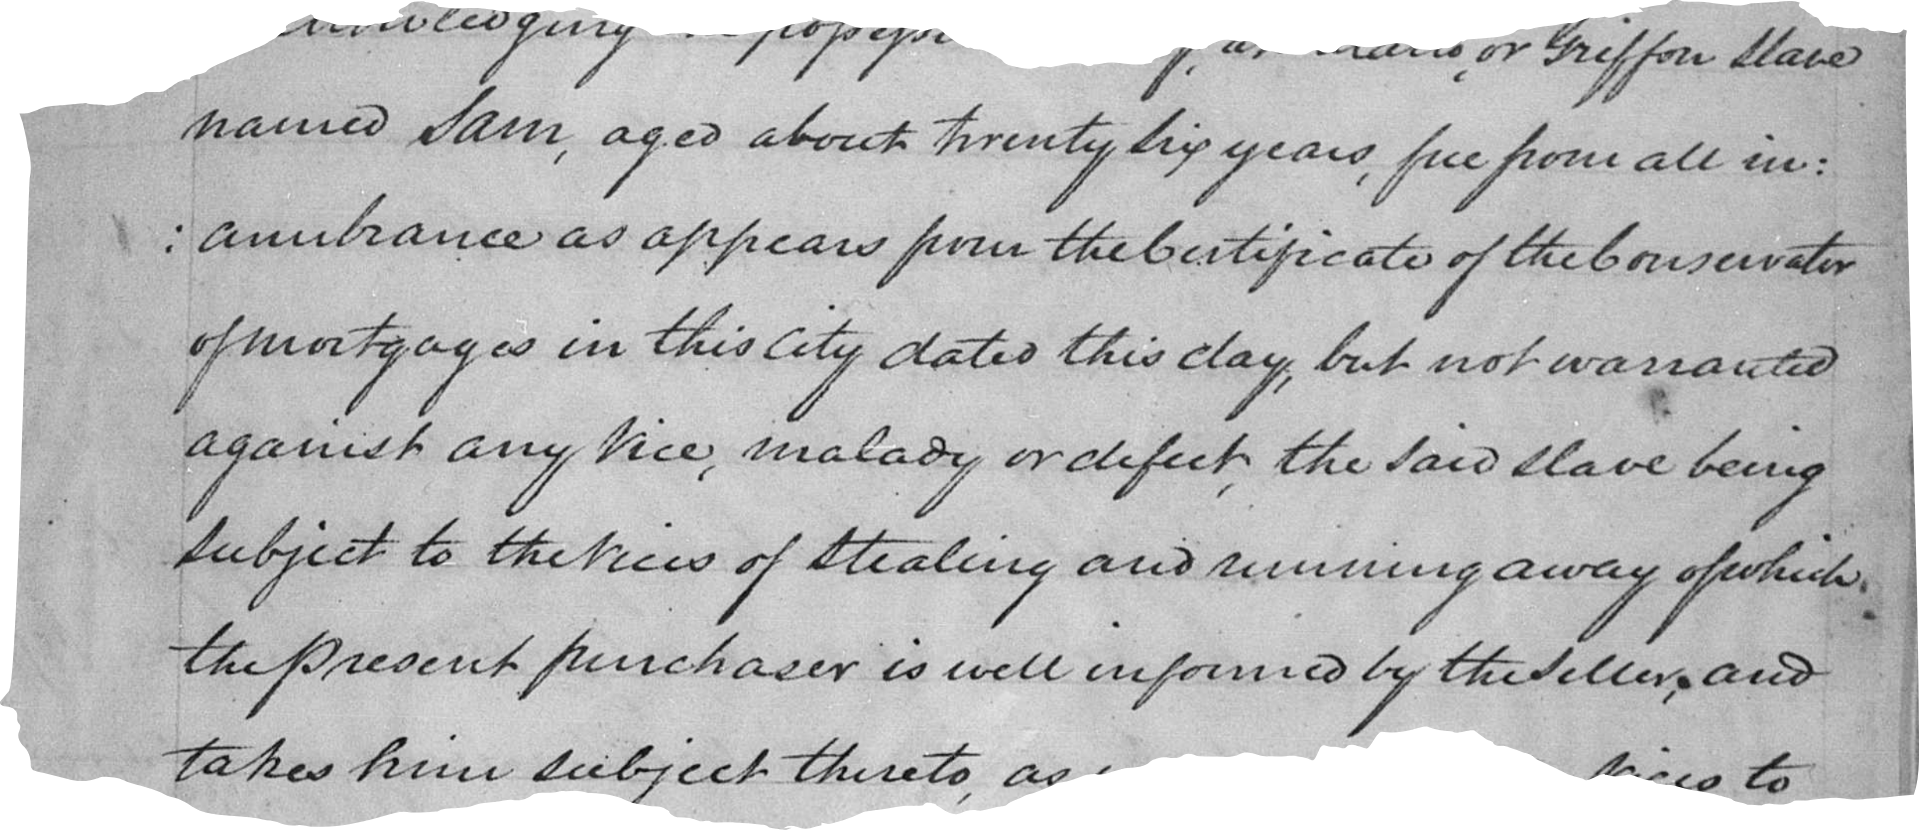 or Griffon slave
named Sam, aged about twenty six years, free from all in:
:cumbrance as appears from the Certificate of the Conservator
of mortgages in this City dated this day, but not warranted
against any Vice, malady or defect, the said slave being
subject to the Vices of Stealing and running away of which
the present purchaser is well informed by the Seller, and
takes him subject thereto, as to